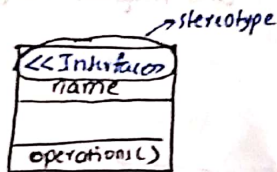 stereotype
<<Interface>>
name
operations()